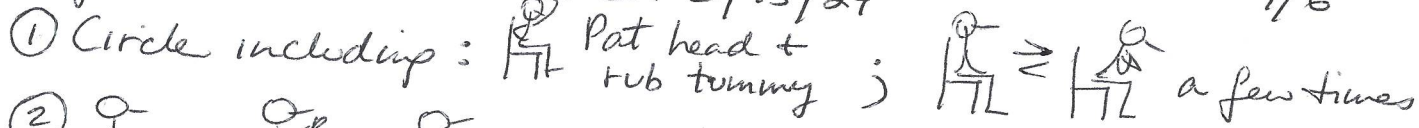 ① Circle including : Pat head +
rub tummy ; ⇄ a few times
②